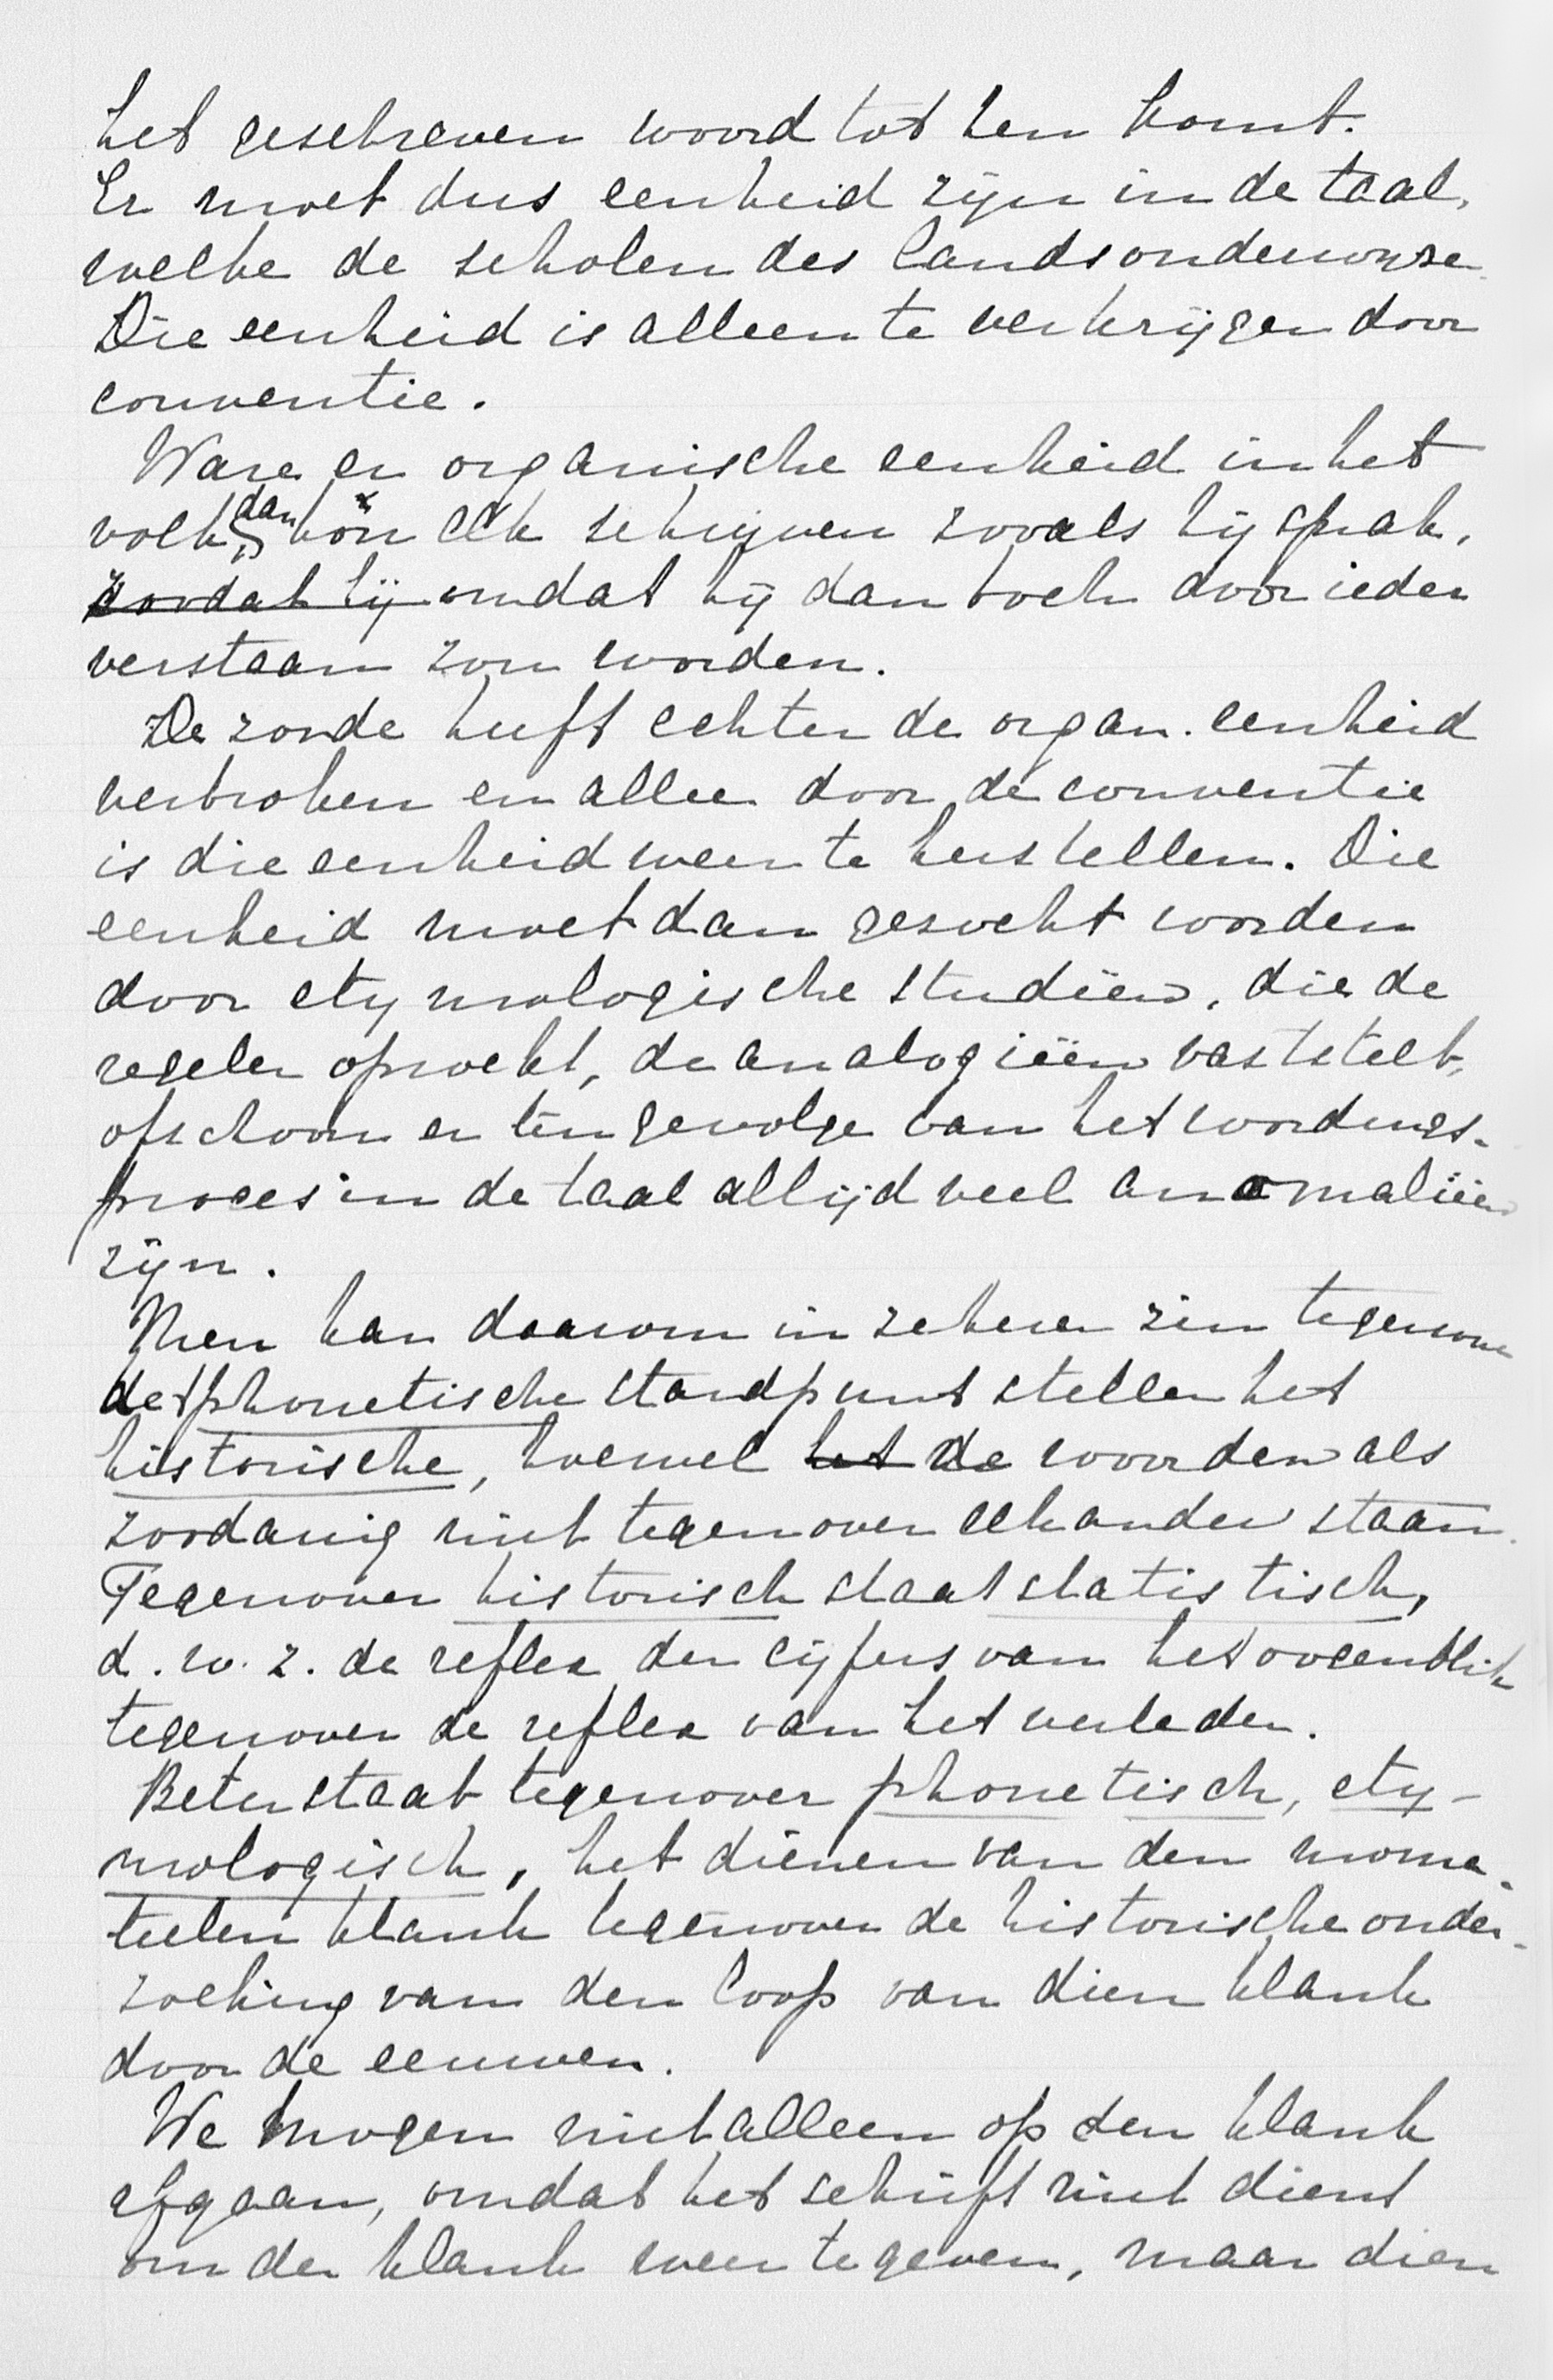 het geschreven woord tot hen komt.
Er moet dus eenheid zijn in de taal,
welke de scholen des lands onderwijze
Die eenheid is alleen te verkrijgen door
conventie.
Ware er organische eenheid in het
volk, dan kòn elk schrijven zooals hij sprak,
zoodat hij omdat hij dan toch door ieder
verstaan zou worden.
De zonde heeft echter de organ. eenheid
verbroken en allee door de conventie
is die eenheid weer te herstellen. Die
eenheid moet dan gezocht worden
door etymologische studiën, die de
regelen opzoekt, de analogiëen vaststelt,
ofschoon er ten gevolge van het wordings-
proces in de taal altijd veel anomaliëen
zijn.
Men kan daarom in zekeren zin tegenover
het phonetische standpunt stellen het
historische, hoewel het de woorden als
zoodanig niet tegenover elkander staan.
Tegenover historisch staat statistisch,
d.w.z. de reflex der cijfers van het oogenblik
tegenover de reflex van het verleden.
Beter staat tegenover phonetisch, ety-
mologisch, het dienen van den momen-
teelen klank tegenover de historische onder-
zoeking van den loop van dien klank
door de eeuwen.
We mogen niet alleen op den klank
afgaan, omdat het schrift niet dient
om den klank weer te geven, maar dien